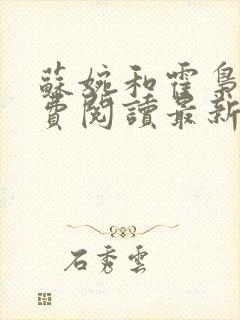 蘇婉和霍梟
費閱讀最新
石秀雲